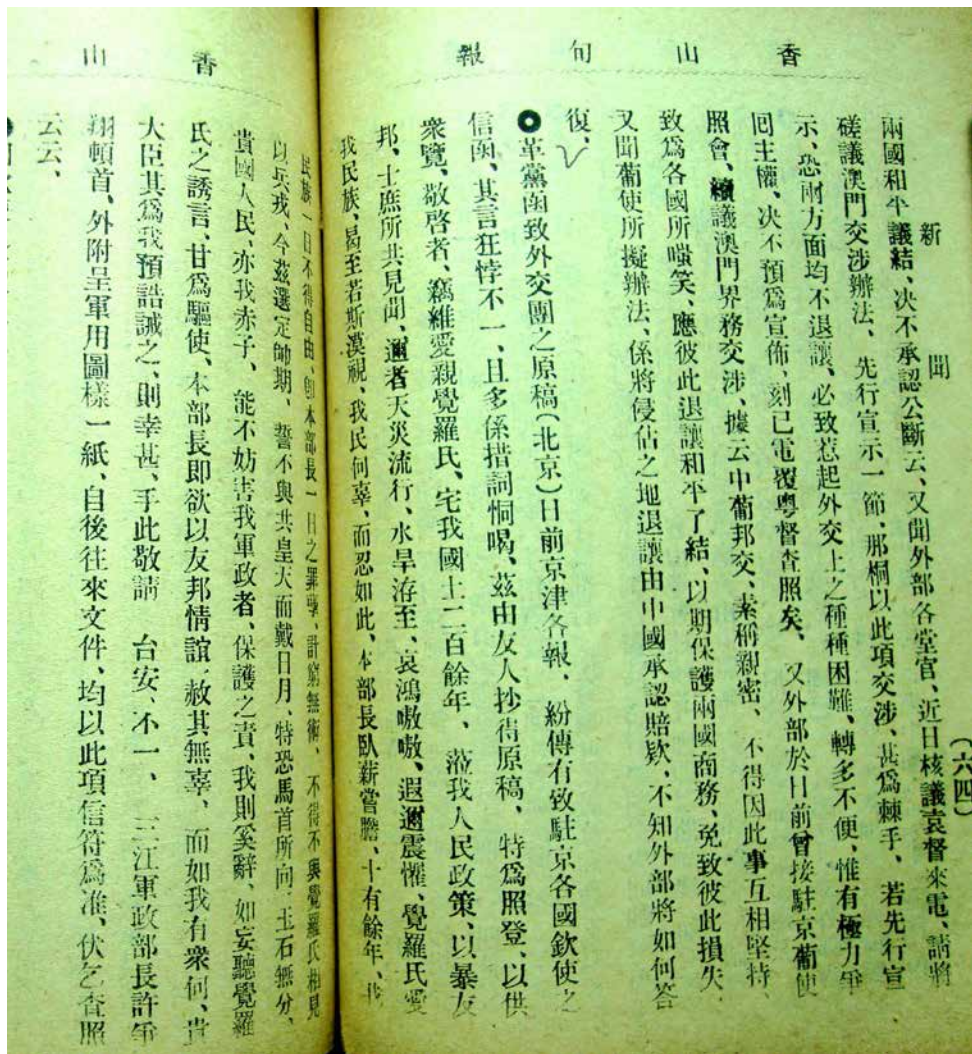 香山旬報
新聞
（六四）
兩國和平議結、决不承認公斷云、又聞外部各堂官、近日核議袁督來電、請將
磋議澳門交涉辦法、先行宣示一節、那桐以此項交涉、甚爲棘手、若先行宣
示、恐兩方面均不退讓、必致惹起外交上之種種困難、轉多不便、惟有極力爭
回主權、决不預爲宣佈、刻已電覆粤督查照矣、又外部於日前曾接駐京葡使
照會、續議澳門界務交涉、據云中葡邦交、素稱親密、不得因此事互相堅持、
致爲各國所嗤笑、應彼此退讓和平了結、以期保護兩國商務、免致彼此損失、
又聞葡使所擬辦法、係將侵佔之地退讓由中國承認賠欵、不知外部將如何答
復、
●革黨函致外交團之原稿（北京）日前京津各報、紛傳有致駐京各國欽使之
信函、其言狂悖不一、且多係措詞恫喝、茲由友人抄得原稿、特爲照登、以供
衆覽、敬啓者、竊維愛親覺羅氏、宅我國土二百餘年、蒞我人民政策、以暴友
邦、士庶所共見聞、邇者天災流行、水旱洊至、哀鴻嗷嗷、遐邇震懼、覺羅氏愛
我民族、曷至若斯漠視、我民何辜、而忍如此、本部長臥薪嘗膽、十有餘年、我
民族一日不得自由、卽本部長一日之罪孽、計窮無術、不得不與覺羅氏相見
香山
以兵戎、今茲選定師期、誓不與共皇天而戴日月、特恐馬首所向、玉石無分、
貴國人民、亦我赤子、能不妨害我軍政者、保護之責、我則奚辭、如妄聽覺羅
氏之誘言、甘爲驅使、本部長即欲以友邦情誼、赦其無辜、而如我有衆何、貴
大臣其爲我預誥誡之、則幸甚、手此敬請　台安、不一、三江軍政部長許爭
翔頓首、外附呈軍用圖樣一紙、自後往來文件、均以此項信符爲准、伏乞查照
云云、